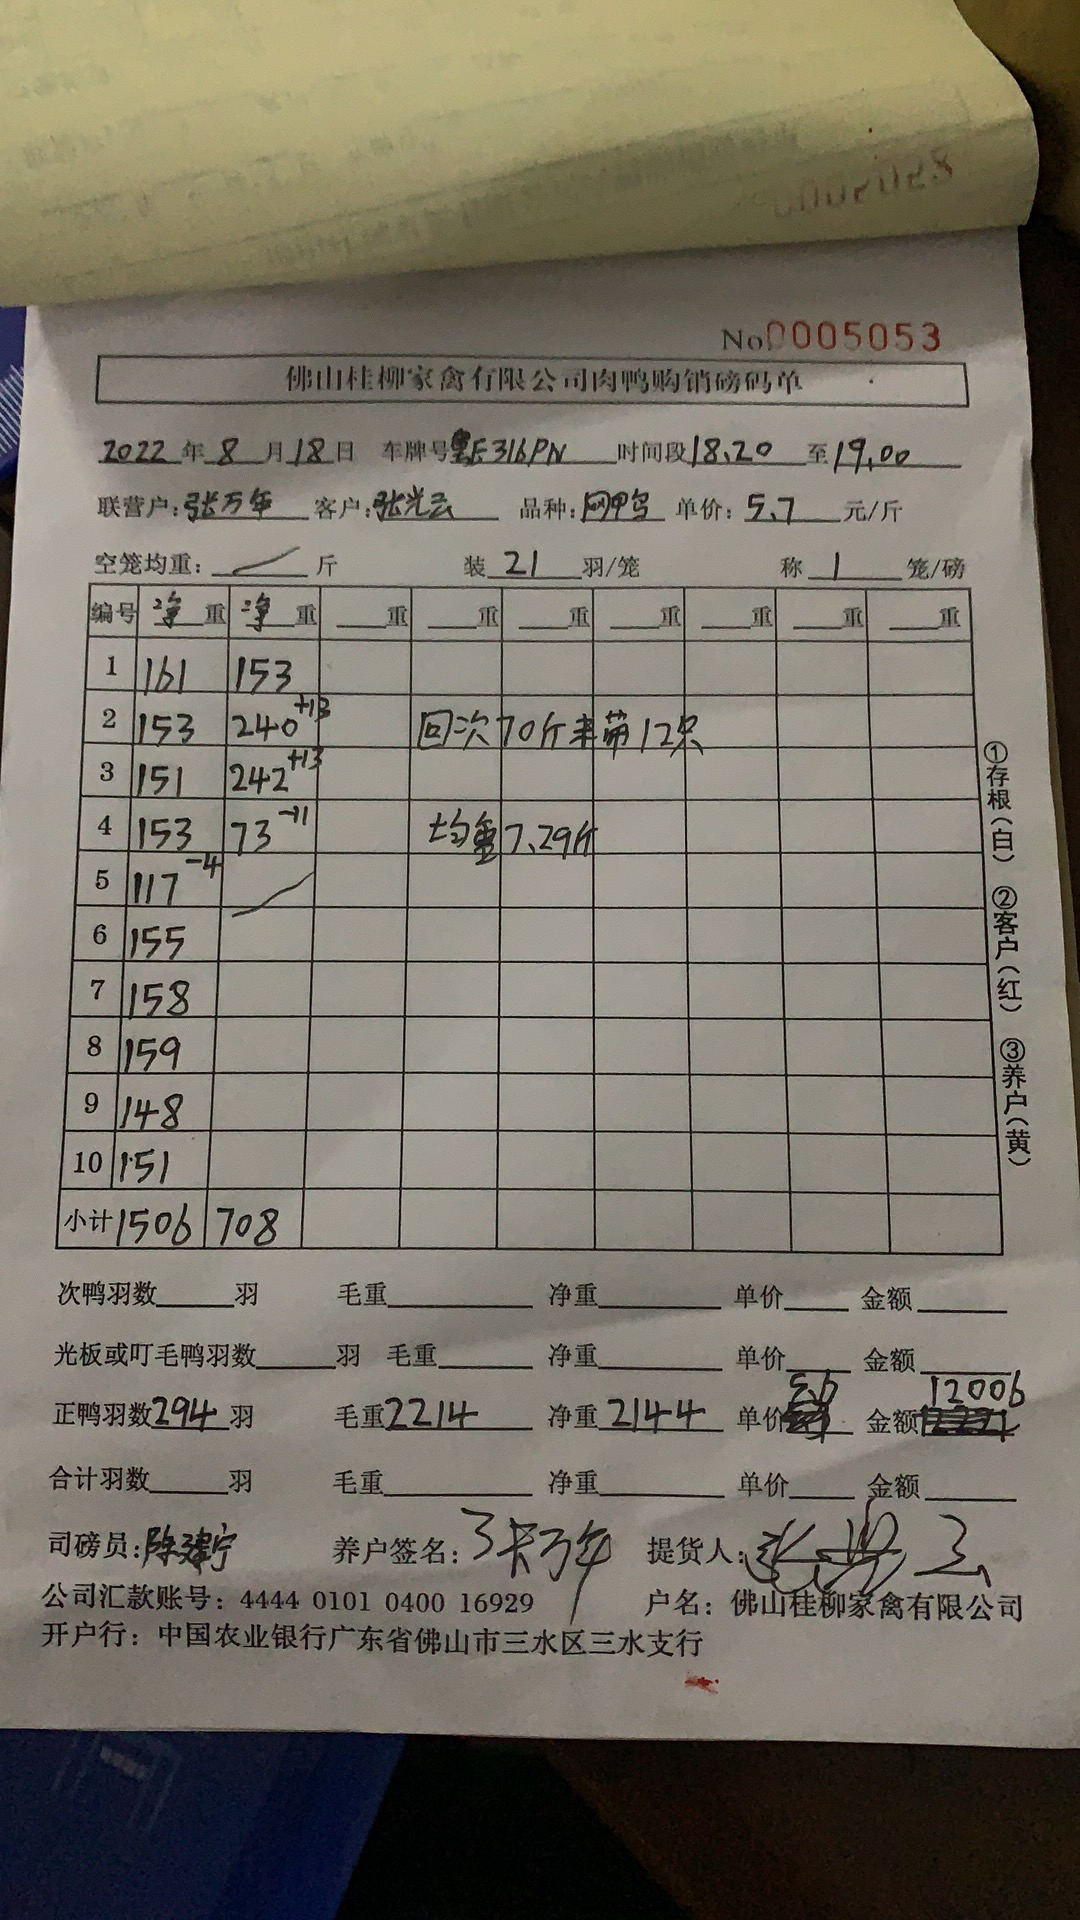 No 0005053
佛山桂柳家禽有限公司肉鸭购销磅码单
2022年8月18日 车牌号粤E316PN 时间段18.20至19.00
联营户:张万年 客户:张光云 品种:网鸭 单价:5.7元/斤
空笼均重: 斤 装21羽/笼 称1笼/磅
编号 净重 净重 重 重 重 重 重 重 重
1 161 153
2 153 240+13 回次70斤未带12只
3 151 242+13
4 153 73-11 均重7.29斤
5 117-4
6 155
7 158
8 159
9 148
10 151
小计 1506 708
①存根(白) ②客户(红) ③养户(黄)
次鸭羽数 羽 毛重 净重 单价 金额
光板或叮毛鸭羽数 羽 毛重 净重 单价 金额
正鸭羽数294羽 毛重2214 净重2144 单价5.6 金额12006
合计羽数 羽 毛重 净重 单价 金额
司磅员:陈建宁 养户签名:张万年 提货人:
公司汇款账号: 4444 0101 0400 16929 户名: 佛山桂柳家禽有限公司
开户行: 中国农业银行广东省佛山市三水区三水支行